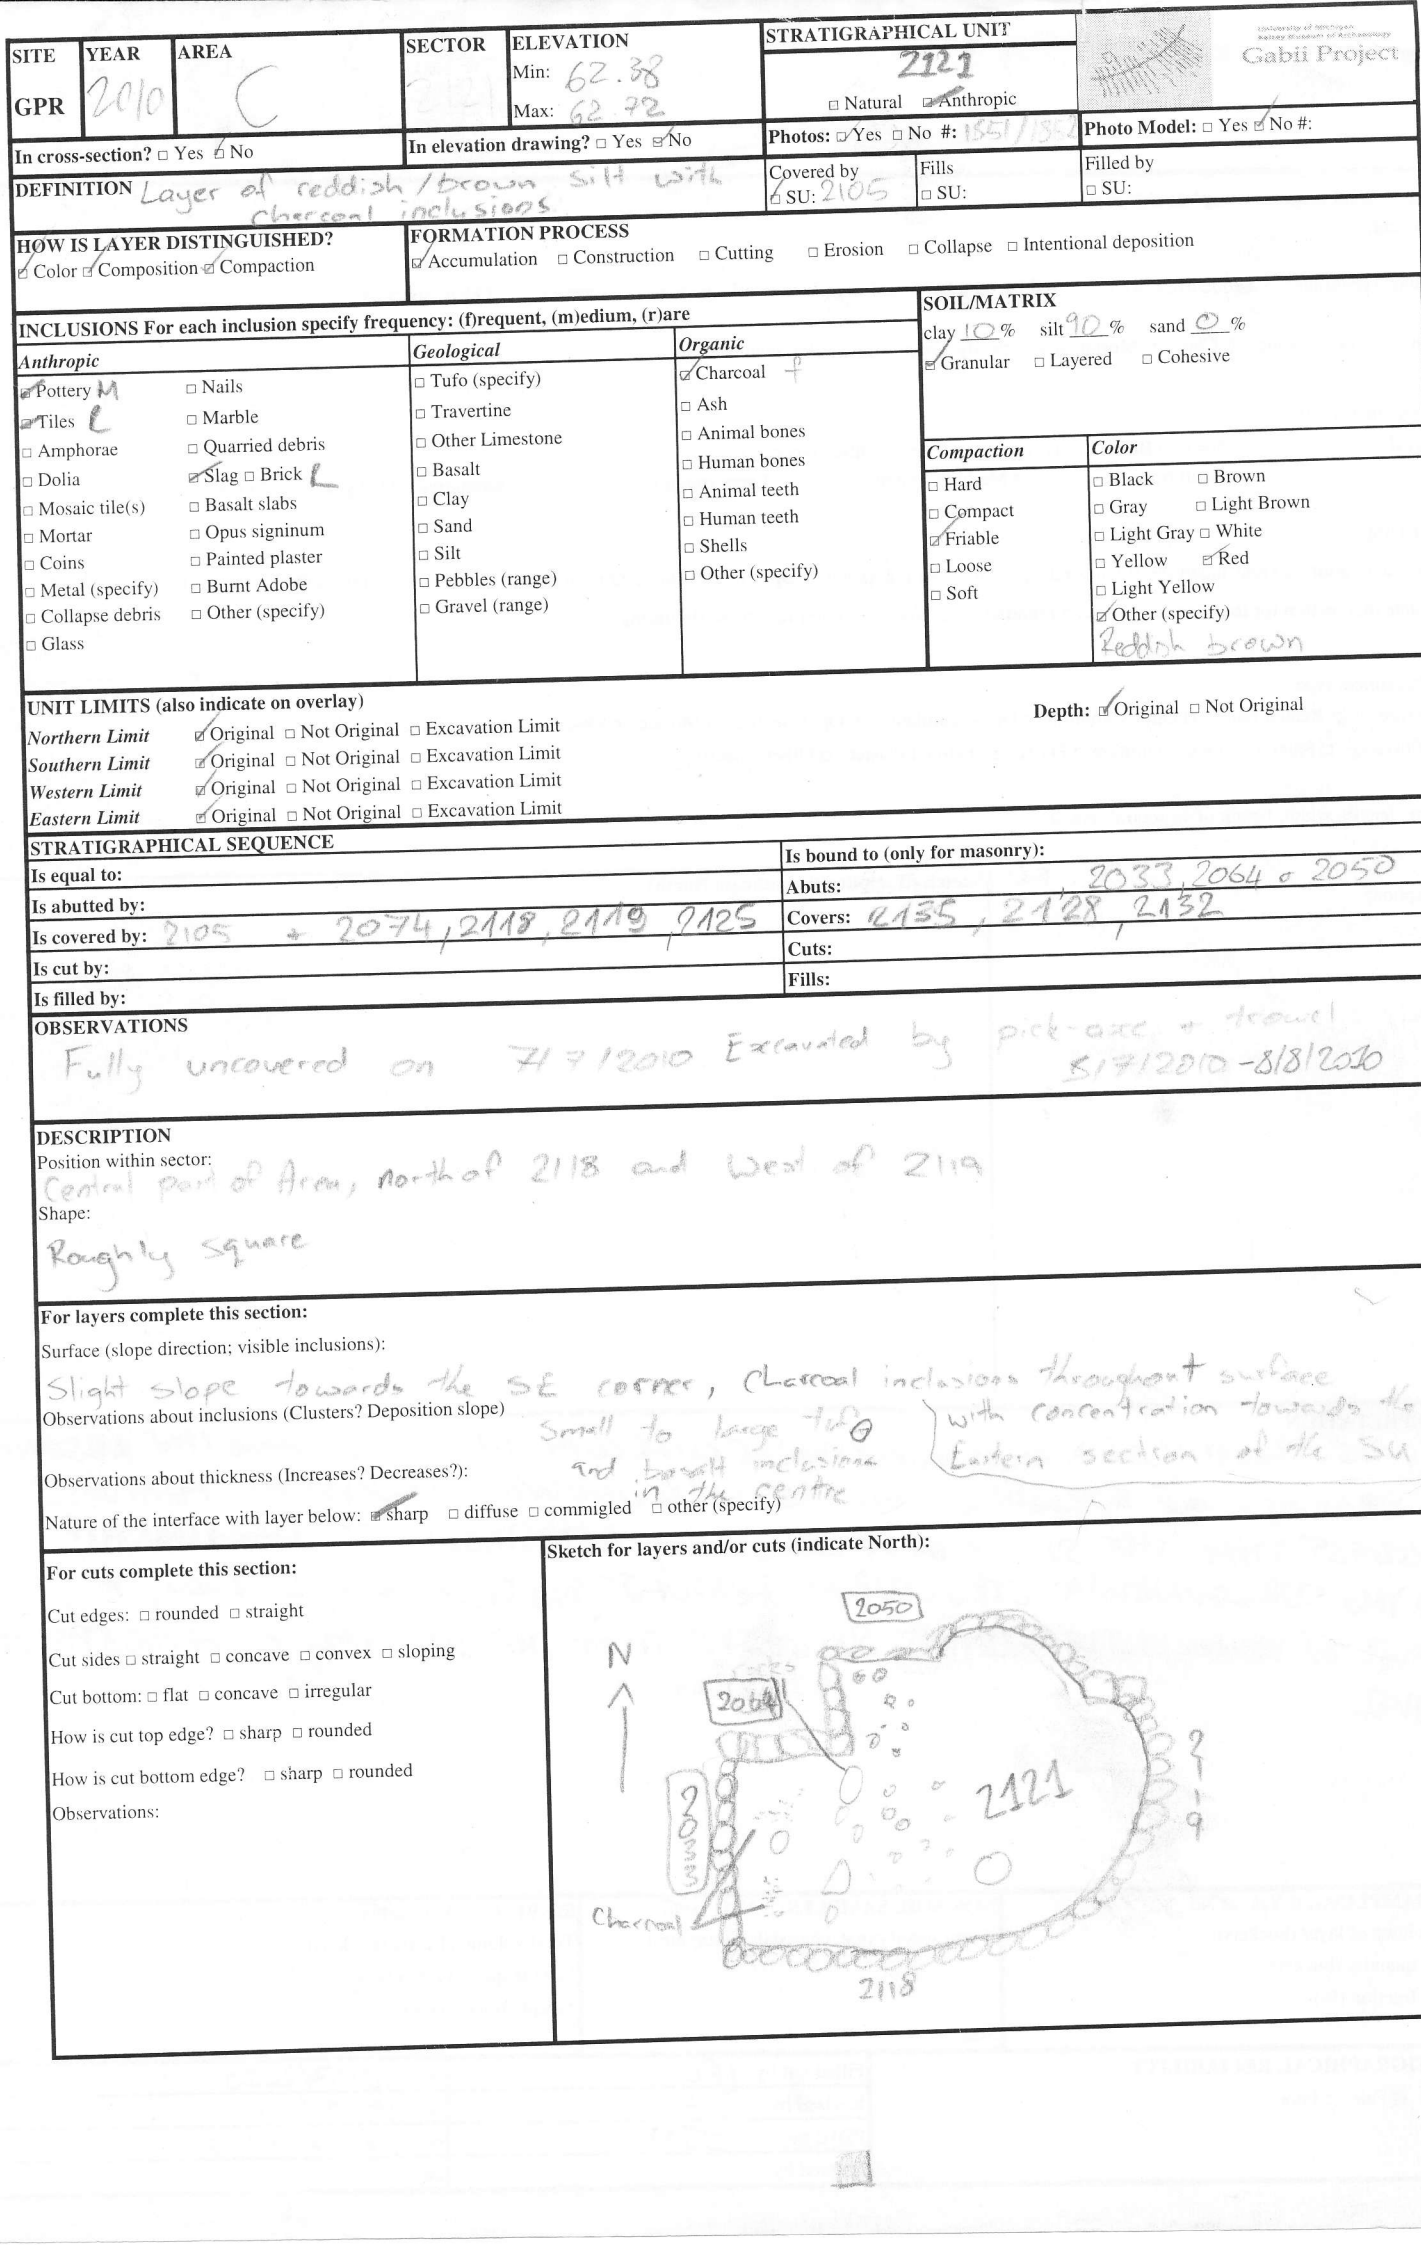 SITE YEAR AREA SECTOR ELEVATION STRATIGRAPHICAL UNIT
GPR 2010 C Min: 62.38 2121
Max: 62.72 □ Natural ☑ Anthropic
University of Michigan
Kelsey Museum of Archaeology
Gabii Project
In cross-section? □ Yes ☑ No In elevation drawing? □ Yes ☑ No Photos: ☑ Yes □ No #: 1851/1852 Photo Model: □ Yes ☑ No #:
DEFINITION Layer of reddish/brown silt with
charcoal inclusions
Covered by Fills Filled by
☑ SU: 2105 □ SU: □ SU:
HOW IS LAYER DISTINGUISHED?
☑ Color ☑ Composition ☑ Compaction
FORMATION PROCESS
☑ Accumulation □ Construction □ Cutting □ Erosion □ Collapse □ Intentional deposition
INCLUSIONS For each inclusion specify frequency: (f)requent, (m)edium, (r)are
Anthropic
☑ Pottery M □ Nails
☑ Tiles □ Marble
□ Amphorae □ Quarried debris
□ Dolia ☑ Slag □ Brick
□ Mosaic tile(s) □ Basalt slabs
□ Mortar □ Opus signinum
□ Coins □ Painted plaster
□ Metal (specify) □ Burnt Adobe
□ Collapse debris □ Other (specify)
□ Glass
Geological
□ Tufo (specify)
□ Travertine
□ Other Limestone
□ Basalt
□ Clay
□ Sand
□ Silt
□ Pebbles (range)
□ Gravel (range)
Organic
☑ Charcoal f
□ Ash
□ Animal bones
□ Human bones
□ Animal teeth
□ Human teeth
□ Shells
□ Other (specify)
SOIL/MATRIX
clay 10 % silt 90 % sand 0 %
☑ Granular □ Layered □ Cohesive
Compaction
□ Hard
□ Compact
☑ Friable
□ Loose
□ Soft
Color
□ Black □ Brown
□ Gray □ Light Brown
□ Light Gray □ White
□ Yellow ☑ Red
□ Light Yellow
☑ Other (specify)
Reddish brown
UNIT LIMITS (also indicate on overlay) Depth: ☑ Original □ Not Original
Northern Limit ☑ Original □ Not Original □ Excavation Limit
Southern Limit ☑ Original □ Not Original □ Excavation Limit
Western Limit ☑ Original □ Not Original □ Excavation Limit
Eastern Limit ☑ Original □ Not Original □ Excavation Limit
STRATIGRAPHICAL SEQUENCE
Is equal to: Is bound to (only for masonry):
Is abutted by: Abuts: 2033, 2064 2050
Is covered by: 2105 + 2074, 2118, 2119, 2125 Covers: 2135, 2128, 2132
Is cut by: Cuts:
Is filled by: Fills:
OBSERVATIONS
Fully uncovered on 7/7/2010 Excavated by pick-axe + trowel
8/7/2010 - 8/8/2010
DESCRIPTION
Position within sector:
Central part of Area, north of 2118 and West of 2119
Shape:
Roughly square
For layers complete this section:
Surface (slope direction; visible inclusions):
Slight slope towards the SE corner, Charcoal inclusions throughout surface
with concentration towards the
Eastern section of the SU
Observations about inclusions (Clusters? Deposition slope)
Small to large tufo
and basalt inclusions
in the centre
Observations about thickness (Increases? Decreases?):
Nature of the interface with layer below: ☑ sharp □ diffuse □ commigled □ other (specify)
For cuts complete this section:
Cut edges: □ rounded □ straight
Cut sides □ straight □ concave □ convex □ sloping
Cut bottom: □ flat □ concave □ irregular
How is cut top edge? □ sharp □ rounded
How is cut bottom edge? □ sharp □ rounded
Observations:
Sketch for layers and/or cuts (indicate North):
2050
N
2064
2119
2121
2033
Charcoal
2118